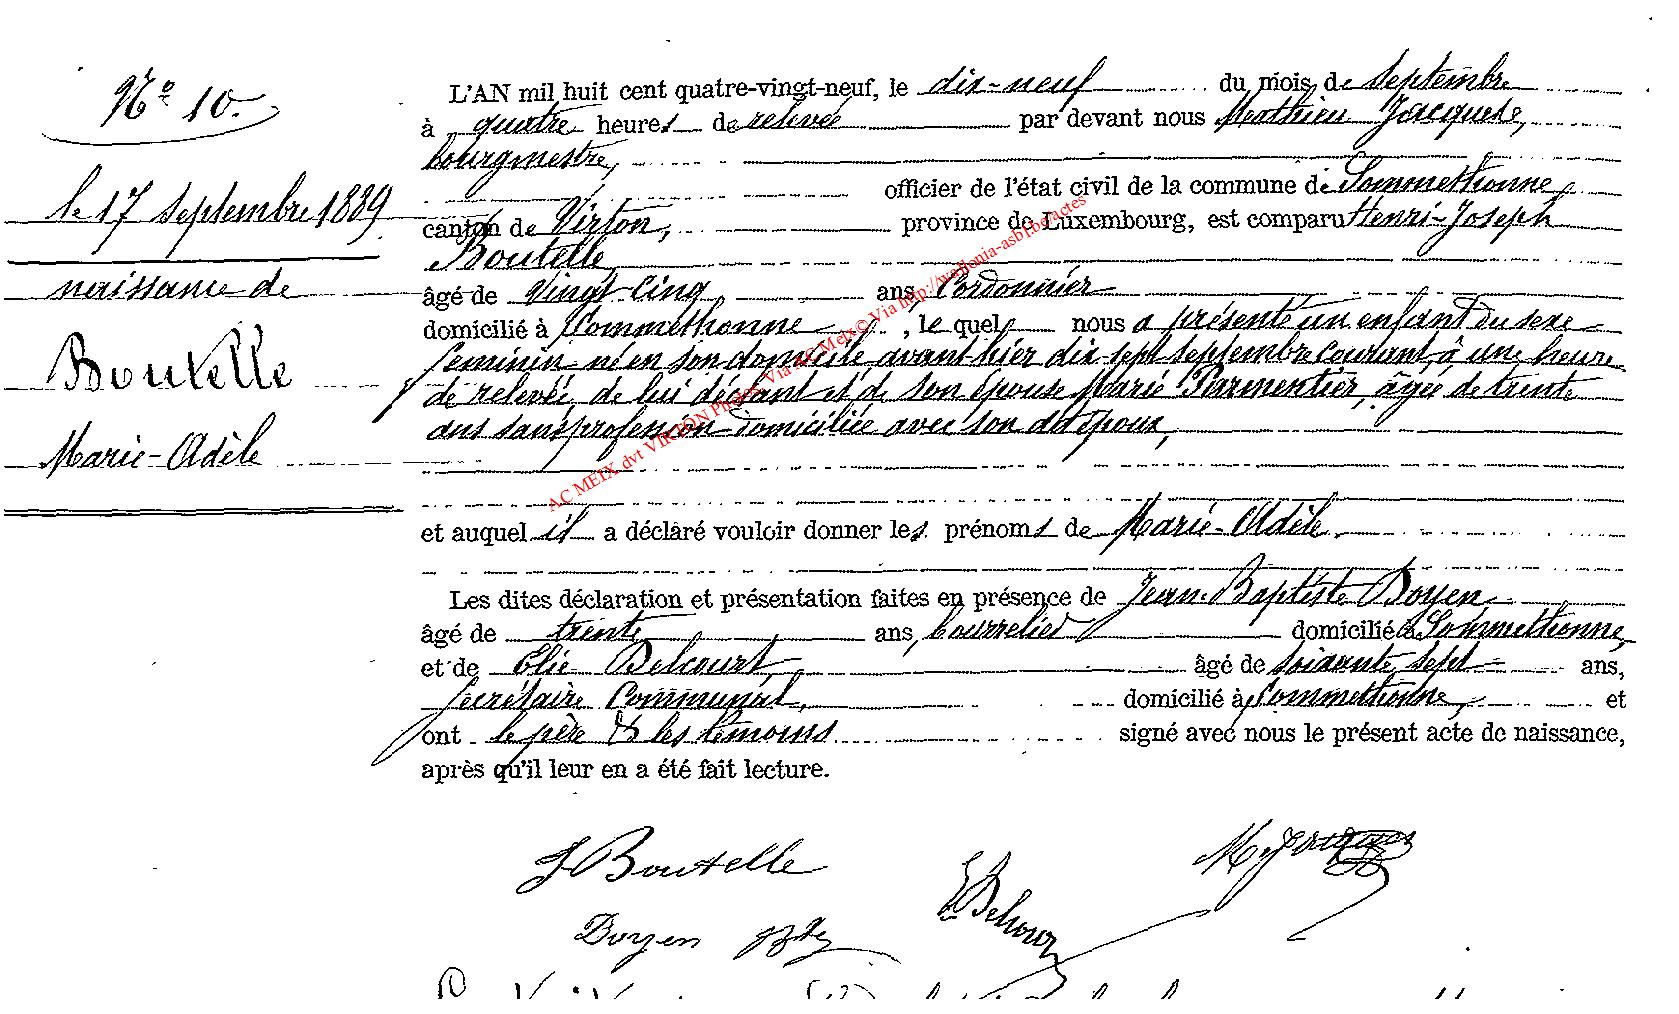 Nº 10.
le 17 Septembre 1889
naissance de
Boutelle
Marie-Adèle
L'AN mil huit cent quatre-vingt-neuf, le dix-neuf du mois de septembre
à quatre heures de relevée par devant nous Mathieu Jacques,
bourgmestre,
officier de l'état civil de la commune de Sommethonne,
canton de Virton, province de Luxembourg, est comparu Henri-Joseph
Boutelle
âgé de Vingt Cinq ans, Cordonnier
domicilié à Sommethonne, le quel nous a présenté un enfant du sexe
féminin né en son domicile avant hier dix-sept septembre courant, à une heure
de relevée, de lui déclarant et de son épouse Marie Parmentier, âgée de trente
ans sans profession domiciliée avec son dit époux,
et auquel il a déclaré vouloir donner les prénoms de Marie-Adèle.
Les dites déclaration et présentation faites en présence de Jean-Baptiste Doyen
âgé de trente ans, bourrelier domicilié à Sommethonne,
et de Elie Delcourt, âgé de soixante sept ans,
Secrétaire Communal, domicilié à Sommethonne, et
ont le père & les témoins signé avec nous le présent acte de naissance,
après qu'il leur en a été fait lecture.
J Boutelle
M. Jacques
Doyen
AC MEIX dvt VIRTON Photos Via AC Meix© Via http://wallonia-asbl.be/actes